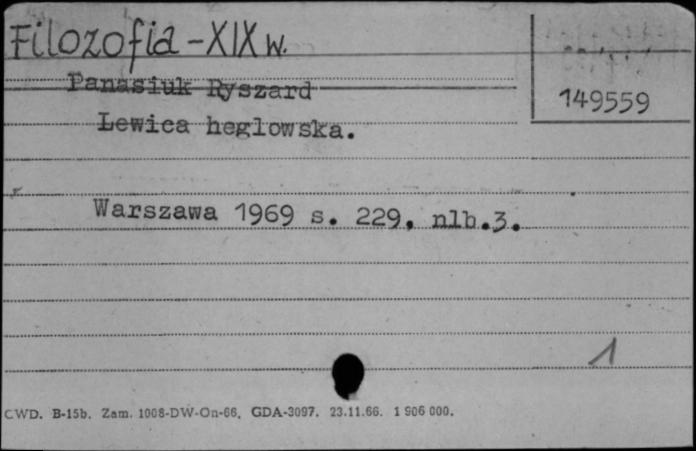 Filozofia - XIX w.
149559
Panasiuk Ryszard
Lewica heglowska.
Warszawa 1969 s. 229, nlb.3.
1
CWD. B-15b. Zam. 1008-DW-On-66. GDA-3097. 23.11.66. 1 906 000.